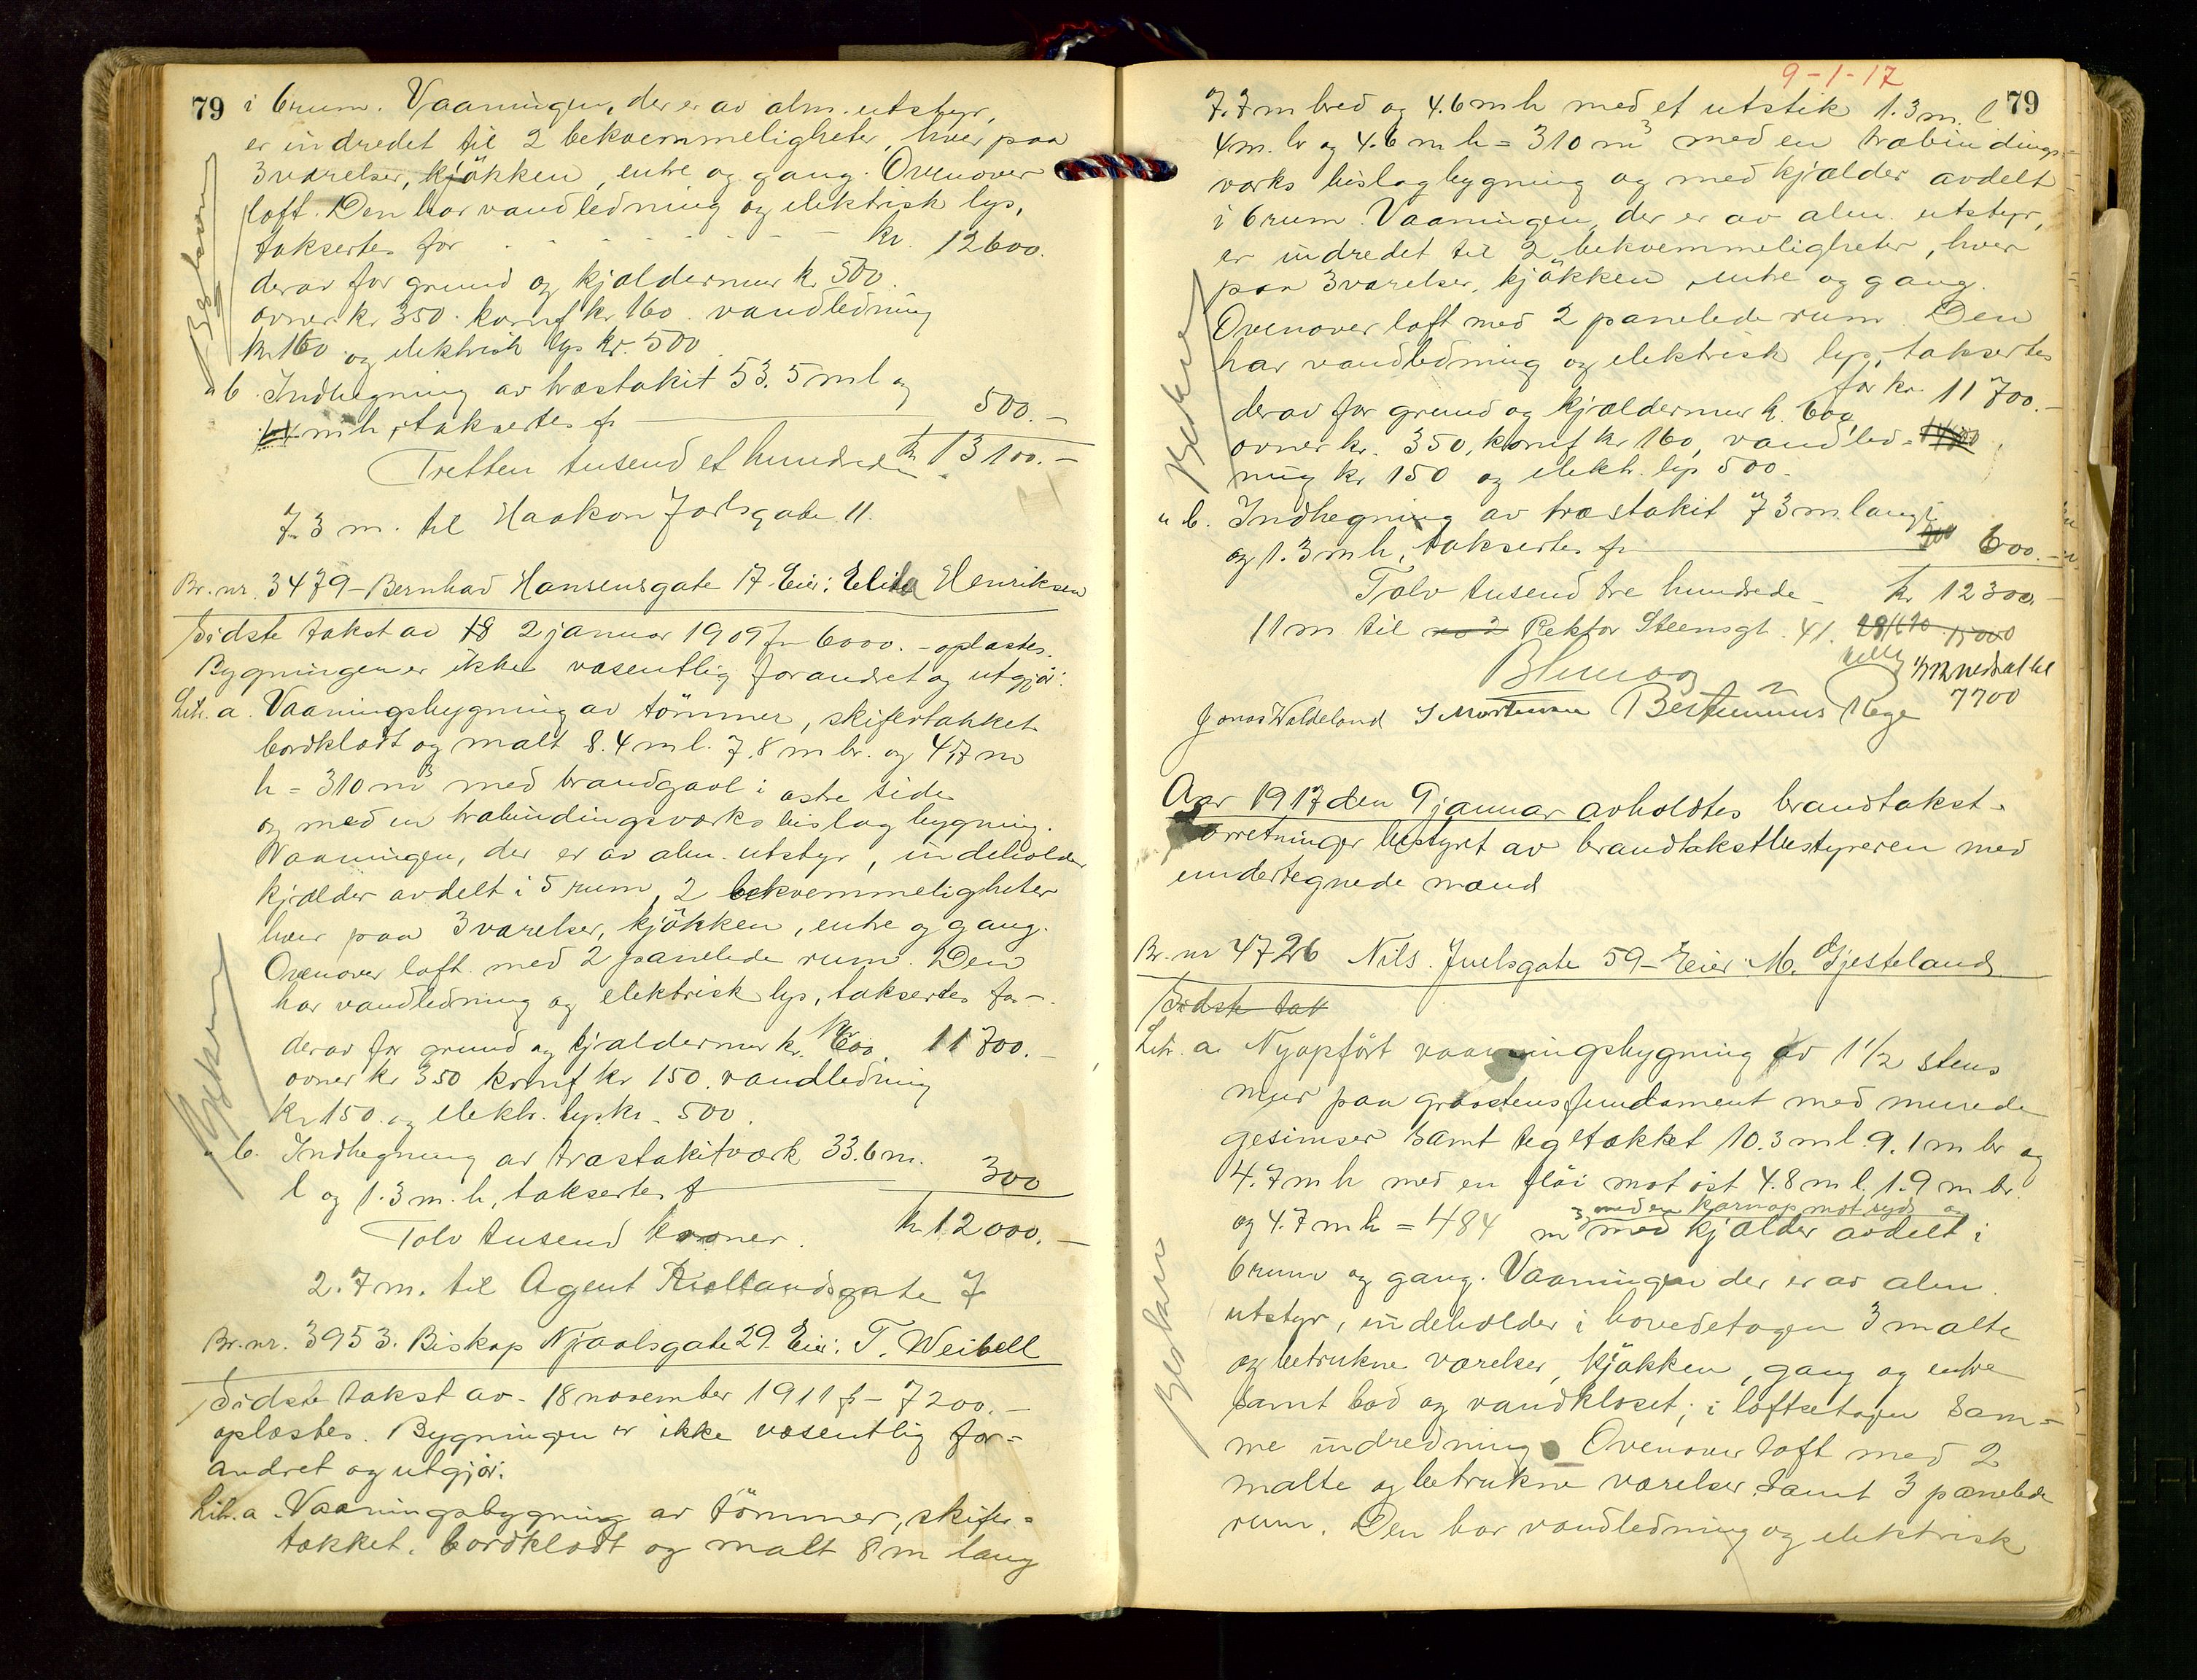 79
i 6 rum. Vaaningen, der er av alm. utstyr,
er indredet til 2 bekvemmeligheter, hver paa
3 værelser, kjøkken, entre og gang. Ovenover
loft. Den har vandledning og elektrisk lys,
taksertes for kr. 12600.
derav for grund og kjældermur kr 500.
ovner kr 350. komf kr 160. vandledning
kr 160 og elektrisk lys kr. 500
" b. Indhegning av træstakit 53.5 m l og
m h, taksertes fr 500.-
Tretten tusend et hundrede kr 13100.-
7.3 m. til Haakon Jarlsgate 11.
Br. nr. 3479 - Bernhard Hansensgate 17 Eier: Elida Henriksen
Sidste takst av 2 januar 1909 fr 6000.- oplæstes.
Bygningen er ikke væsentlig forandret og utgjør:
Litr. a. Vaaningsbygning av tømmer, skifertækket
bordklædt og malt 8.4 m l. 7.8 m br. og 4.7 m
h = 310 m³ med brandgavl i østre side
og med en træbindingsværks bislagbygning.
Vaaningen, der er av alm. utstyr, indeholder
kjælder avdelt i 5 rum, 2 bekvemmeligheter
hver paa 3 værelser, kjøkken, entre og gang.
Ovenover loft med 2 panelede rum. Den
har vandledning og elektrisk lys, taksertes for -
derav for grund og kjældermur kr. 600. kr 11700.-
ovner kr 350 komf kr 150. vandledning
kr 150. og elektr. lys kr. 500.
" b. Indhegning av træstakitværk 33.6 m.
l og 1.3 m. h, taksertes f 300
Tolv tusend kroner. kr 12000.-
2.7 m. til Agent Kiellandsgate 7
Br. nr. 3953. Biskop Njaalsgate 29. Eier: T. Weibell
Sidste takst av - 18 november 1911 fr - 7200.-
oplæstes. Bygningen er ikke væsentlig for=
andret og utgjør:
Litr. a. Vaaningsbygning av tømmer, skifer=
tækket, bordklædt og malt 8 m lang
9-1-17
79
7.7 m bred og 4.6 m h med et utstik 1.3 m. l
4 m. br og 4.6 m h = 310 m³ med en træbindings=
værks bislagbygning og med kjælder avdelt
i 6 rum. Vaaningen, der er av alm. utstyr,
er indredet til 2 bekvemmeligheter, hver
paa 3 værelser, kjøkken, entre og gang.
Ovenover loft med 2 panelede rum. Den
har vandledning og elektrisk lys, taksertes
for kr. 11700.-
derav for grund og kjældermur kr. 600,
ovner kr. 350, komf kr 160, vandled=
ning kr 150 og elektr. lys 500.
" b. Indhegning av træstakit 73 m. lang
og 1.3 m h, taksertes fr 600.-
Tolv tusend tre hundrede - kr 12300.-
11 m til Rektor Steensgt. 41.
nedsat til
7700
Jonas Waldeland S Mortensen Rege
Aar 1917 den 9 januar avholdtes brandtakst-
forretninger bestyret av brandtakstbestyreren med
undertegnede mænd
Br. nr 4726 Nils Juelsgate 59 - Eier: M. Gjesteland
Sidste tak
Litr. a. Nyopført vaaningsbygning av 1 1/2 stens
mur paa graastensfundament med murede
gesimser samt tegltækket 10.3 m l. 9.1 m br og
4.7 m h med en fløi mot øst 4.8 m l. 1.9 m br.
med en karnap mot syd og
og 4.7 m h = 484 m³ med kjælder avdelt i
6 rum og gang. Vaaningen der er av alm.
utstyr, indeholder i hovedetagen 3 malte
og betrukne værelser, kjøkken, gang og entre
samt bod og vandkloset; i loftsetagen sam=
me indredning. Ovenover loft med 2
malte og betrukne værelser samt 3 panelede
rum. Den har vandledning og elektrisk